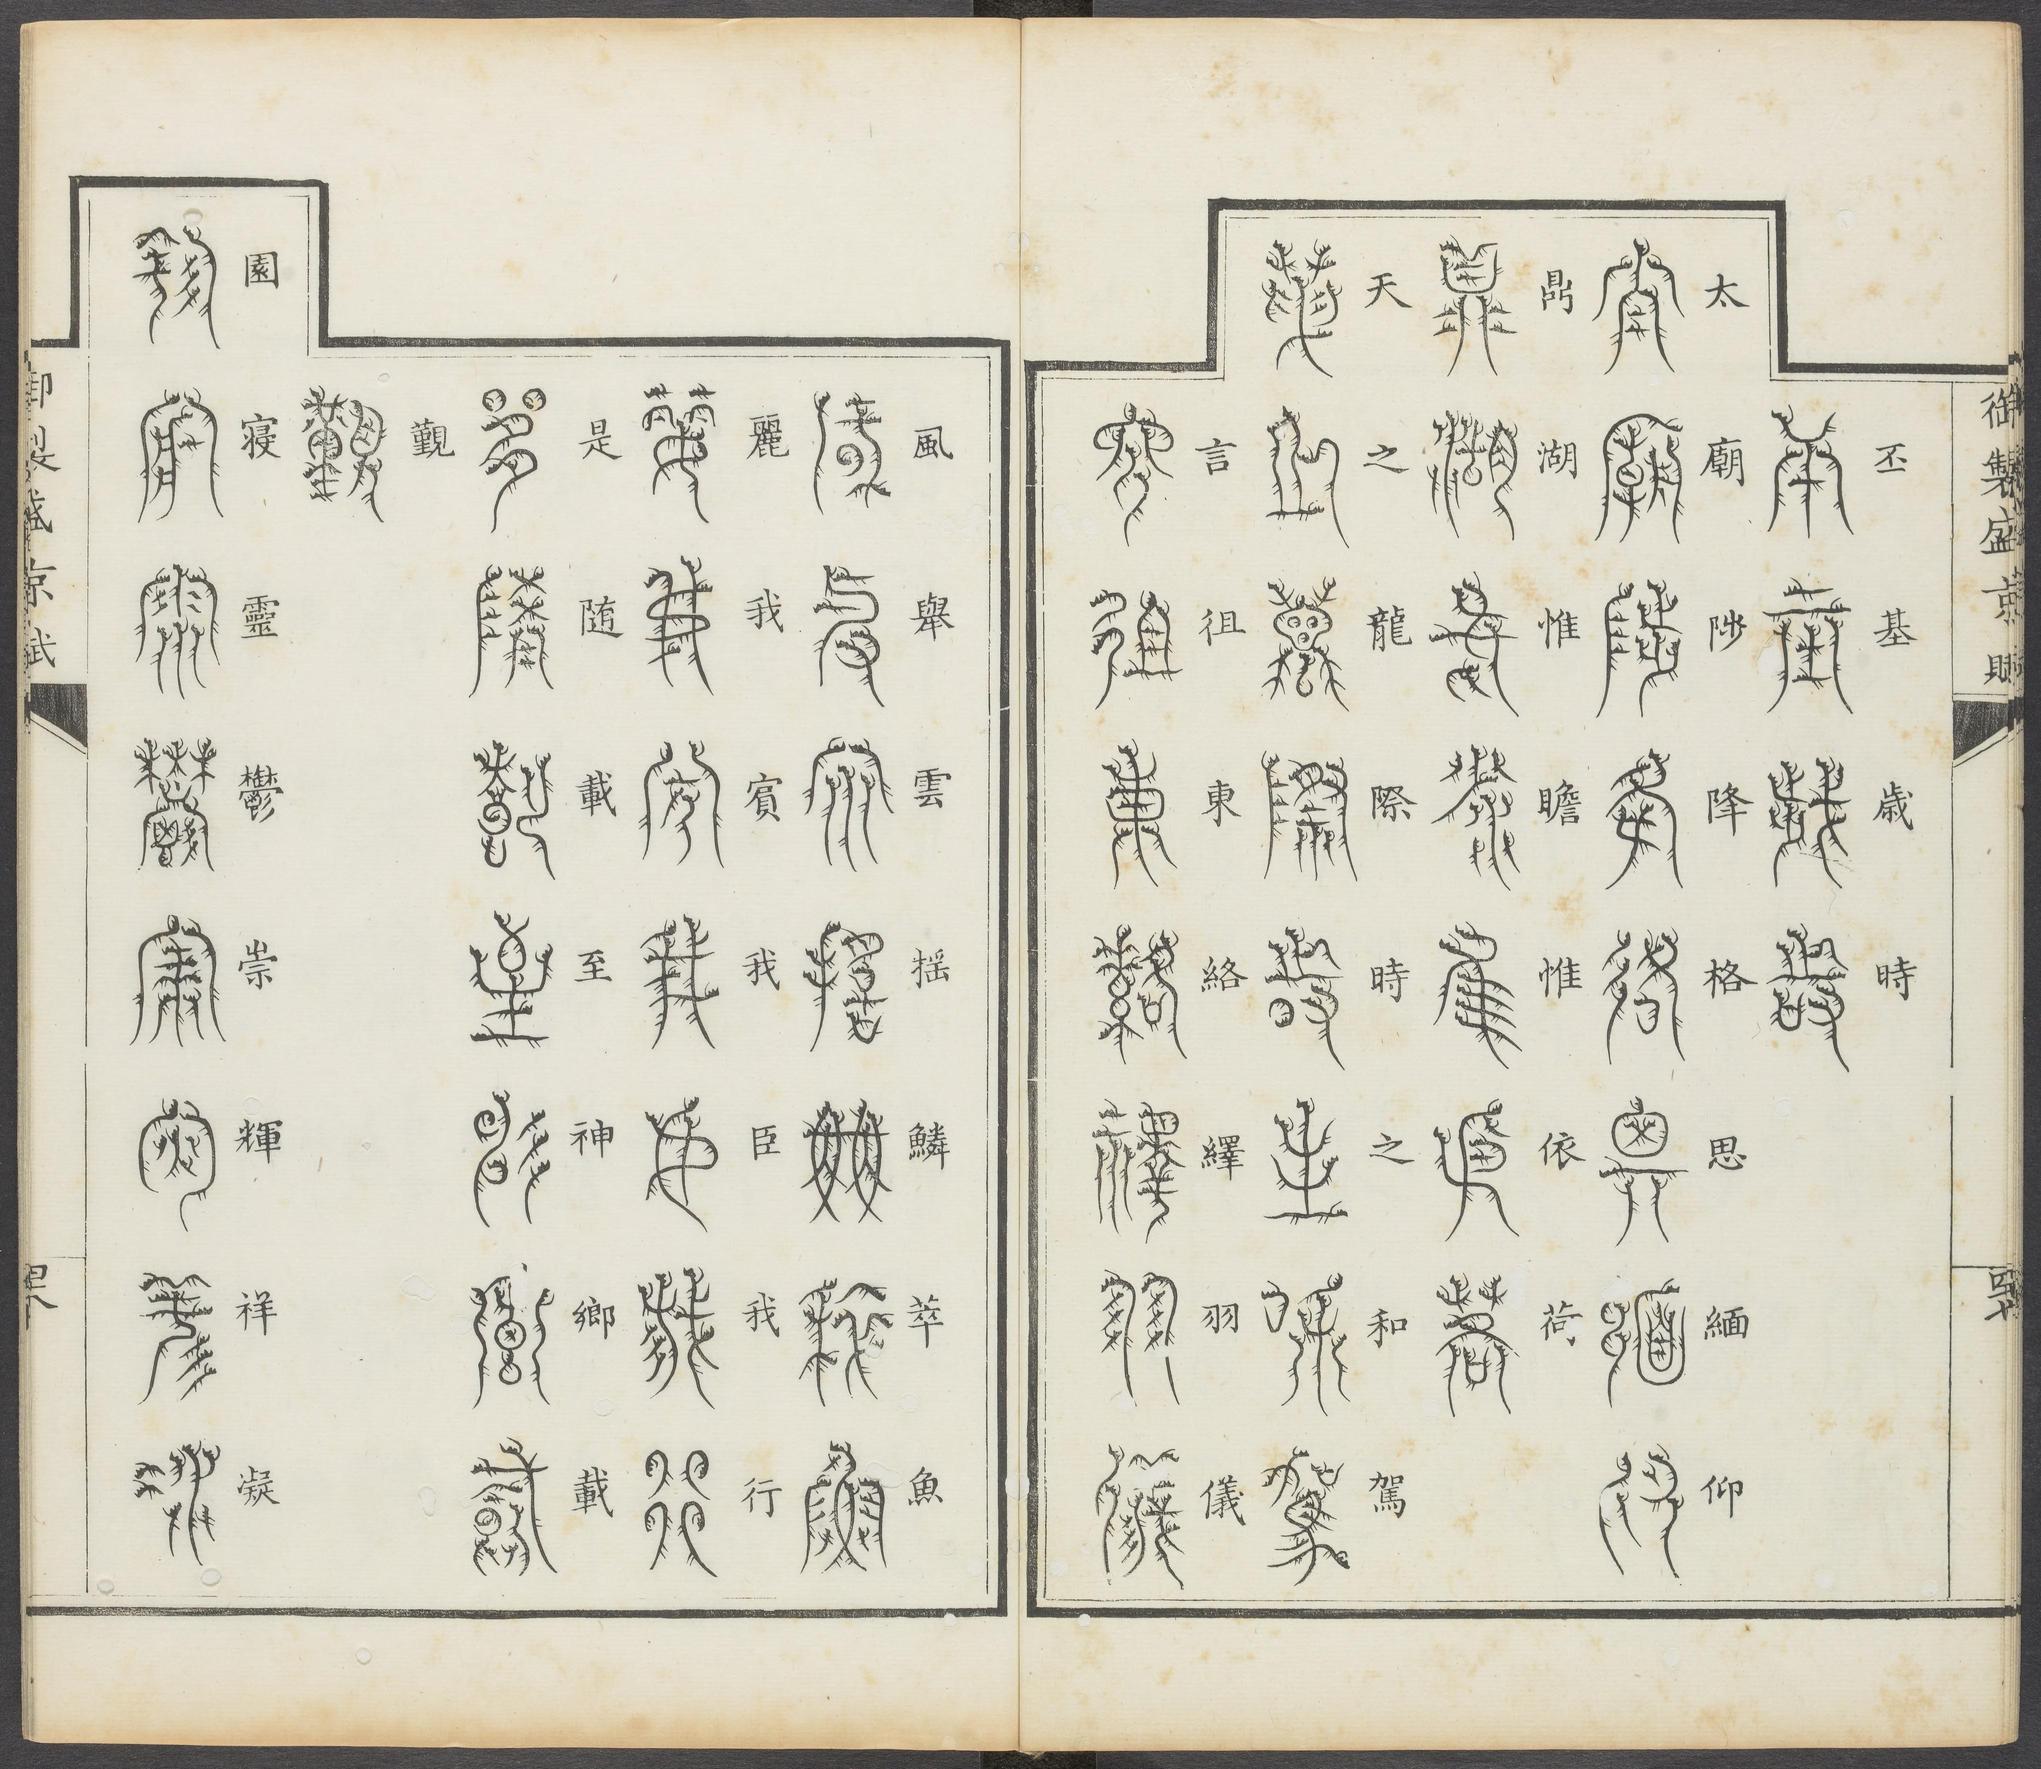 御製盛京賦
丕基歲時
太廟陟降格思緬仰
鼎湖惟瞻惟依荷
天之龍際時之和駕
言徂東絡繹羽儀
風舉雲搖鱗萃魚
麗我賓我臣我行
是隨載至神鄉載
覲
園寢靈鬱崇輝祥凝
御製盛京賦